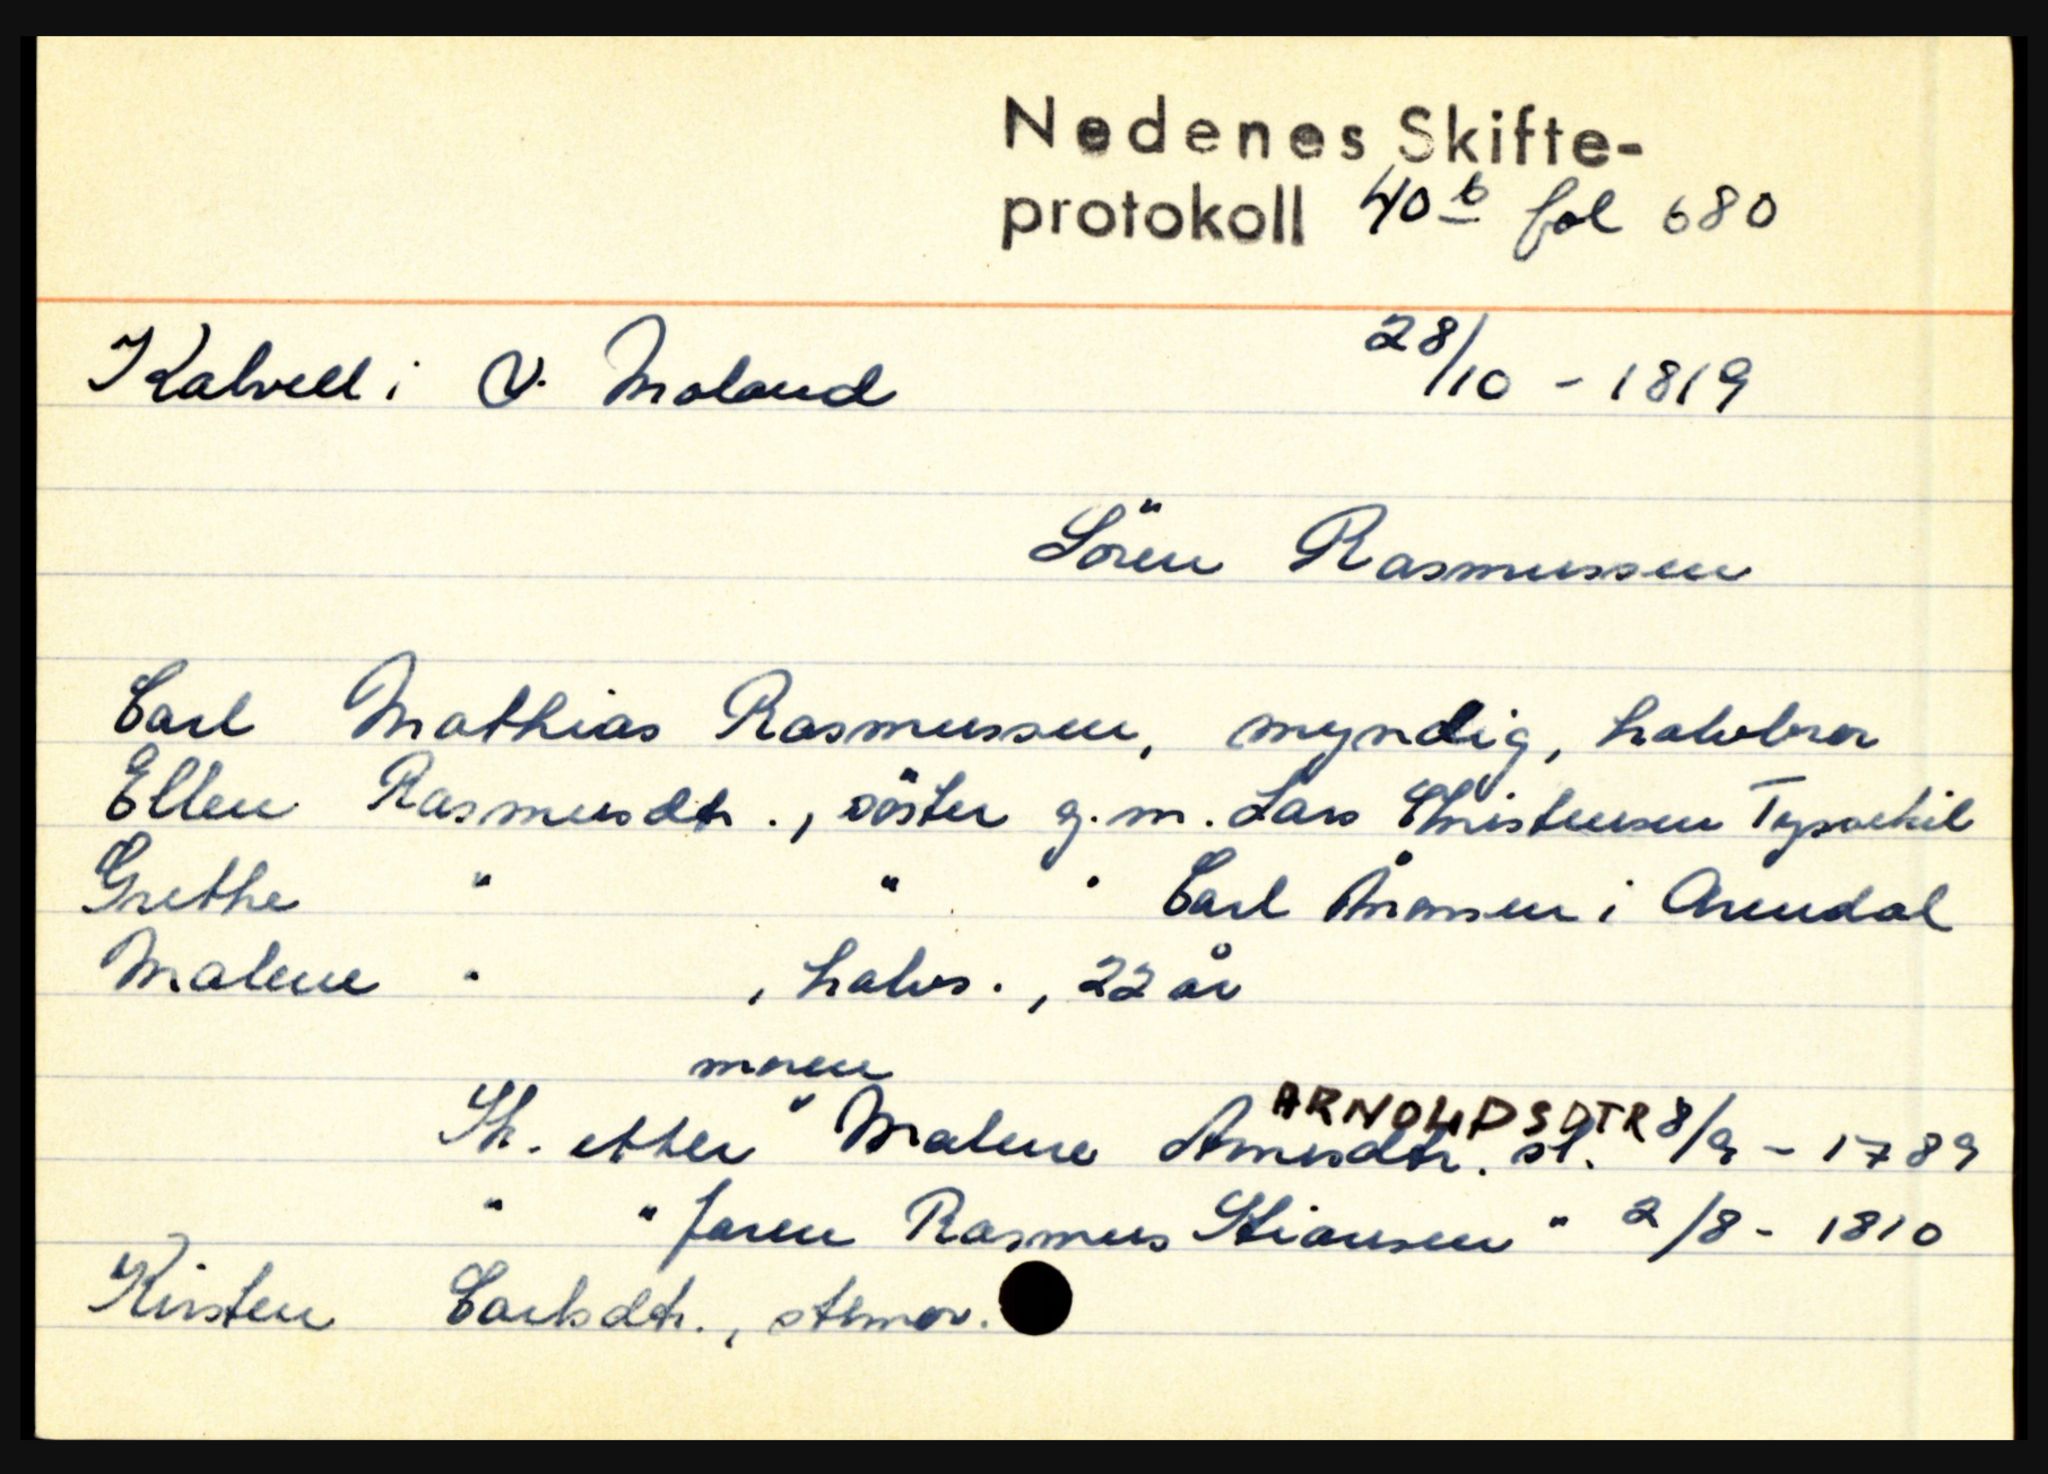 Nedenes Skifte-
protokoll 40 b fol 680
Kalvell i V. Moland 28/10 - 1819
Sören Rasmussen
Carl Mathias Rasmussen, myndig, halvbror
Ellen Rasmusdtr., söster g.m. Lars Christensen
Grethe " " " Carl Åmonsen i Arendal
Malene " , halvs. , 22 år
moren
Sk. etter Malene ARNOLDSDTR st. 8/9 - 1789
" " faren Rasmus Stiansen " 2/8 - 1810
Kirsten Carlsdtr., stemor.